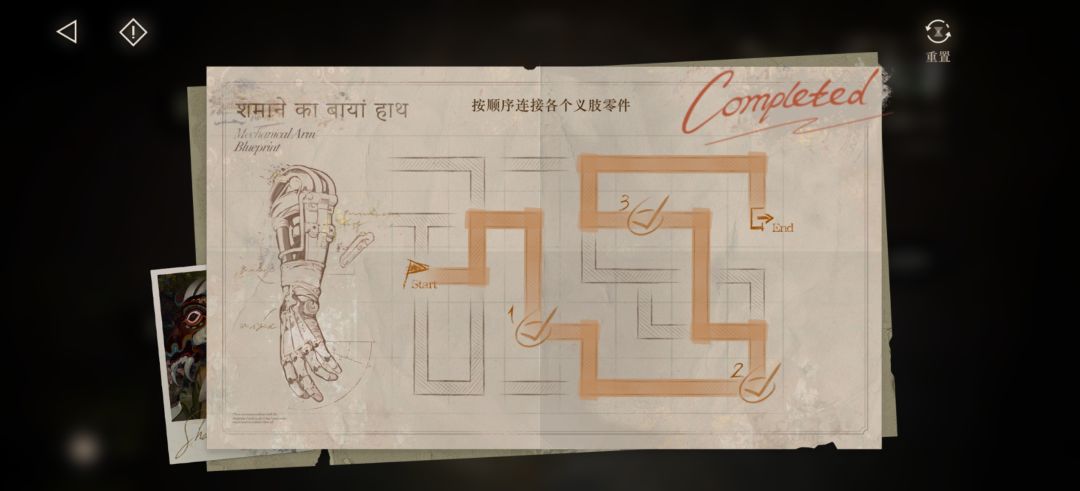 重置
शमाने का बायां हाथ
按顺序连接各个义肢零件
Completed
Mechanical Arm
Blueprint
3
End
Start
1
2